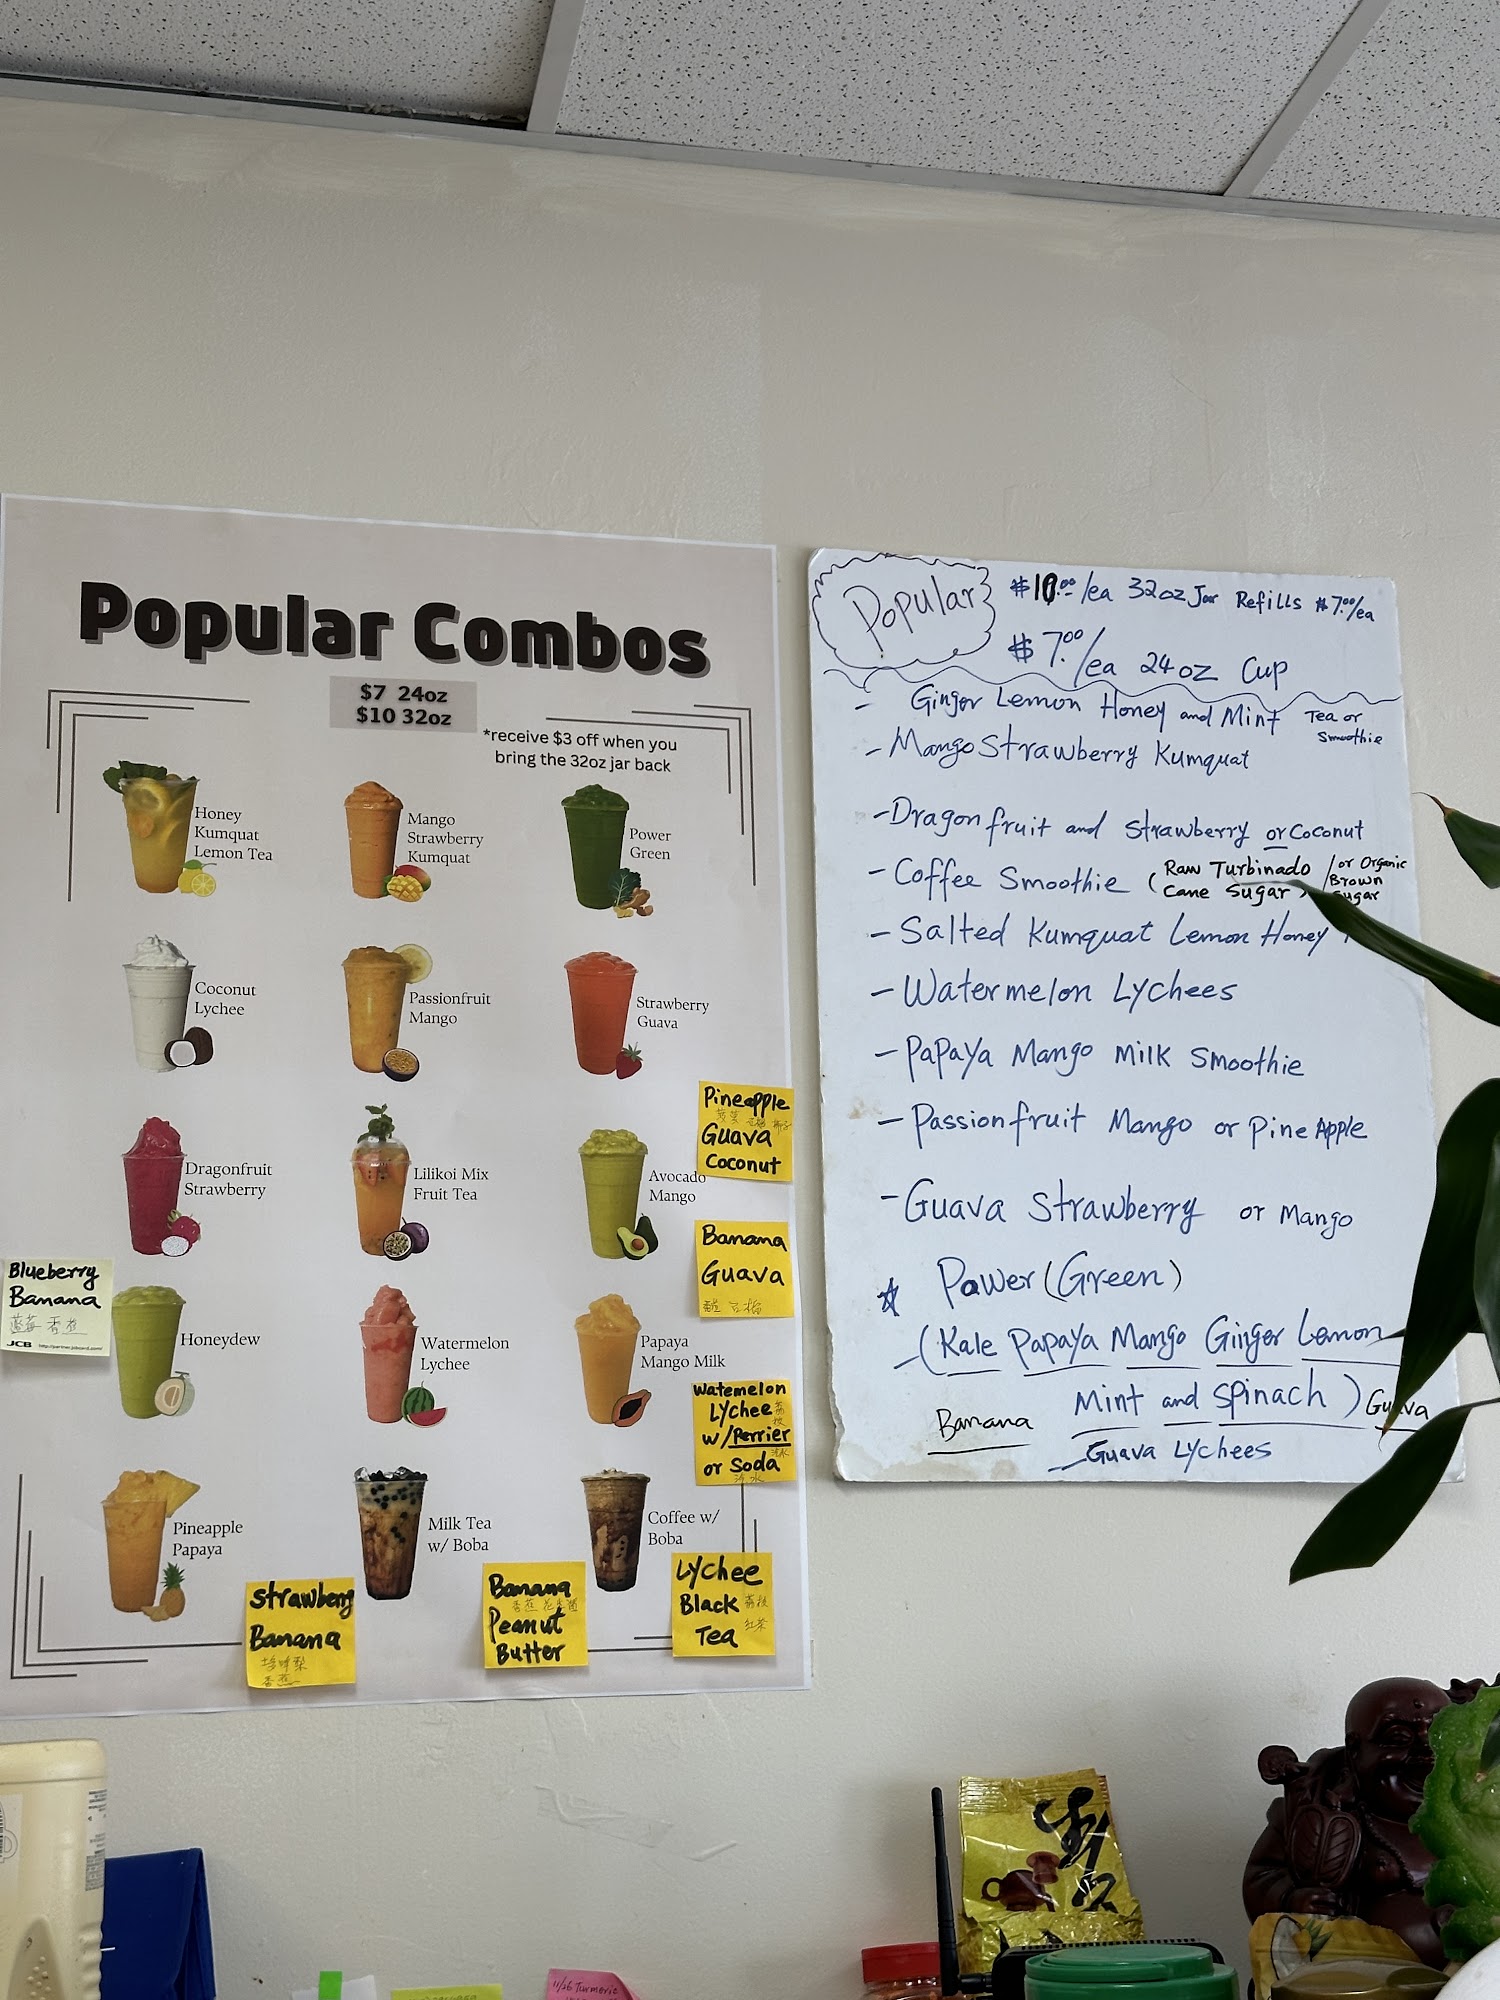 Popular Combos
$7 24oz
$10 32oz
*receive $3 off when you
bring the 32oz jar back
Honey
Kumquat
Lemon Tea
Mango
Strawberry
Kumquat
Power
Green
Coconut
Lychee
Passionfruit
Mango
Strawberry
Guava
Dragonfruit
Strawberry
Lilikoi Mix
Fruit Tea
Avocado
Mango
Honeydew
Watermelon
Lychee
Papaya
Mango Milk
Pineapple
Papaya
Milk Tea
w/ Boba
Coffee w/
Boba
Pineapple
Guava
Coconut
Banana
Guava
Blueberry
Banana
蓝莓 香蕉
JCB
Watemelon
Lychee
荔枝
w/Perrier
or Soda
Strawberry
Banana
香蕉
Banana
香蕉 花生酱
Peanut
Butter
Lychee
Black 荔枝
Tea 红茶
Popular
$10.00/ea 32oz Jar Refills $7.00/ea
$7.00/ea 24oz Cup
- Ginger Lemon Honey and Mint Tea or
Smoothie
- Mango Strawberry Kumquat
- Dragon fruit and Strawberry or Coconut
- Coffee Smoothie (Raw Turbinado
Cane Sugar) /or Organic
Brown
Sugar
- Salted Kumquat Lemon Honey
- Watermelon Lychees
- Papaya Mango Milk Smoothie
- Passion fruit Mango or Pine Apple
- Guava Strawberry or Mango
☆ Power (Green)
- (Kale Papaya Mango Ginger Lemon
Mint and Spinach) Guava
Banana
- Guava Lychees
11/26 Turmeric